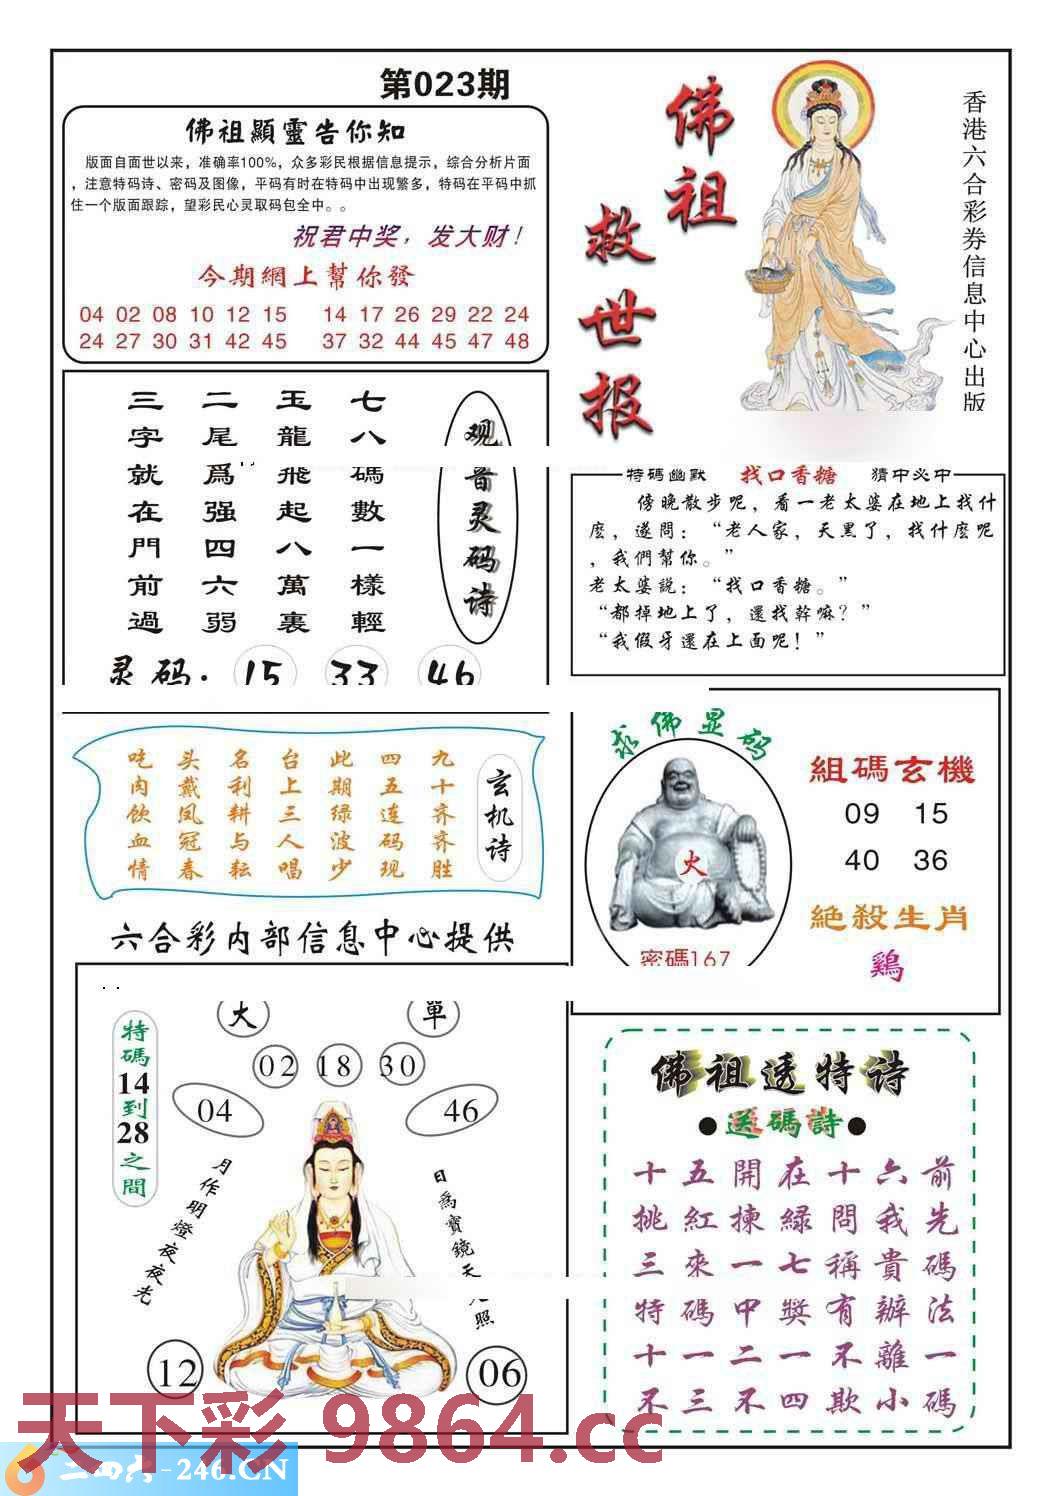 第023期
佛祖顯靈告你知
版面自面世以来，准确率100%，众多彩民根据信息提示，综合分析片面
，注意特码诗、密码及图像，平码有时在特码中出现繁多，特码在平码中抓
住一个版面跟踪，望彩民心灵取码包全中。。
祝君中奖，发大财！
今期網上幫你發
04 02 08 10 12 15 14 17 26 29 22 24
24 27 30 31 42 45 37 32 44 45 47 48
佛祖
救世报
香港六合彩券信息中心出版
观音灵码诗
七八碼數一樣輕
玉龍飛起八萬裏
二尾爲强四六弱
三字就在門前過
灵码：15 33 46
特碼幽默 找口香糖 猜中必中
傍晚散步呢，看一老太婆在地上找什
麽，遂問：“老人家，天黑了，找什麽呢
，我們幫你。”
老太婆説：“找口香糖。”
“都掉地上了，還找幹嘛？”
“我假牙還在上面呢！”
玄机诗
九十齐齐胜
四五连码现
此期绿波少
台上三人唱
名利耕与耘
头戴凤冠春
吃肉饮血情
求佛显码
火
密碼167
組碼玄機
09 15
40 36
絶殺生肖
鷄
六合彩内部信息中心提供
特碼14到28之間
大
單
02 18 30
04
46
月作明燈夜夜光
日為寶鏡天
照
12
06
佛祖透特诗
●送碼詩●
十五開在十六前
挑紅揀緑問我先
三來一七稱貴碼
特碼中獎有辦法
十一二一不離一
不三不四欺小碼
天下彩 9864.cc
二四六-246.CN